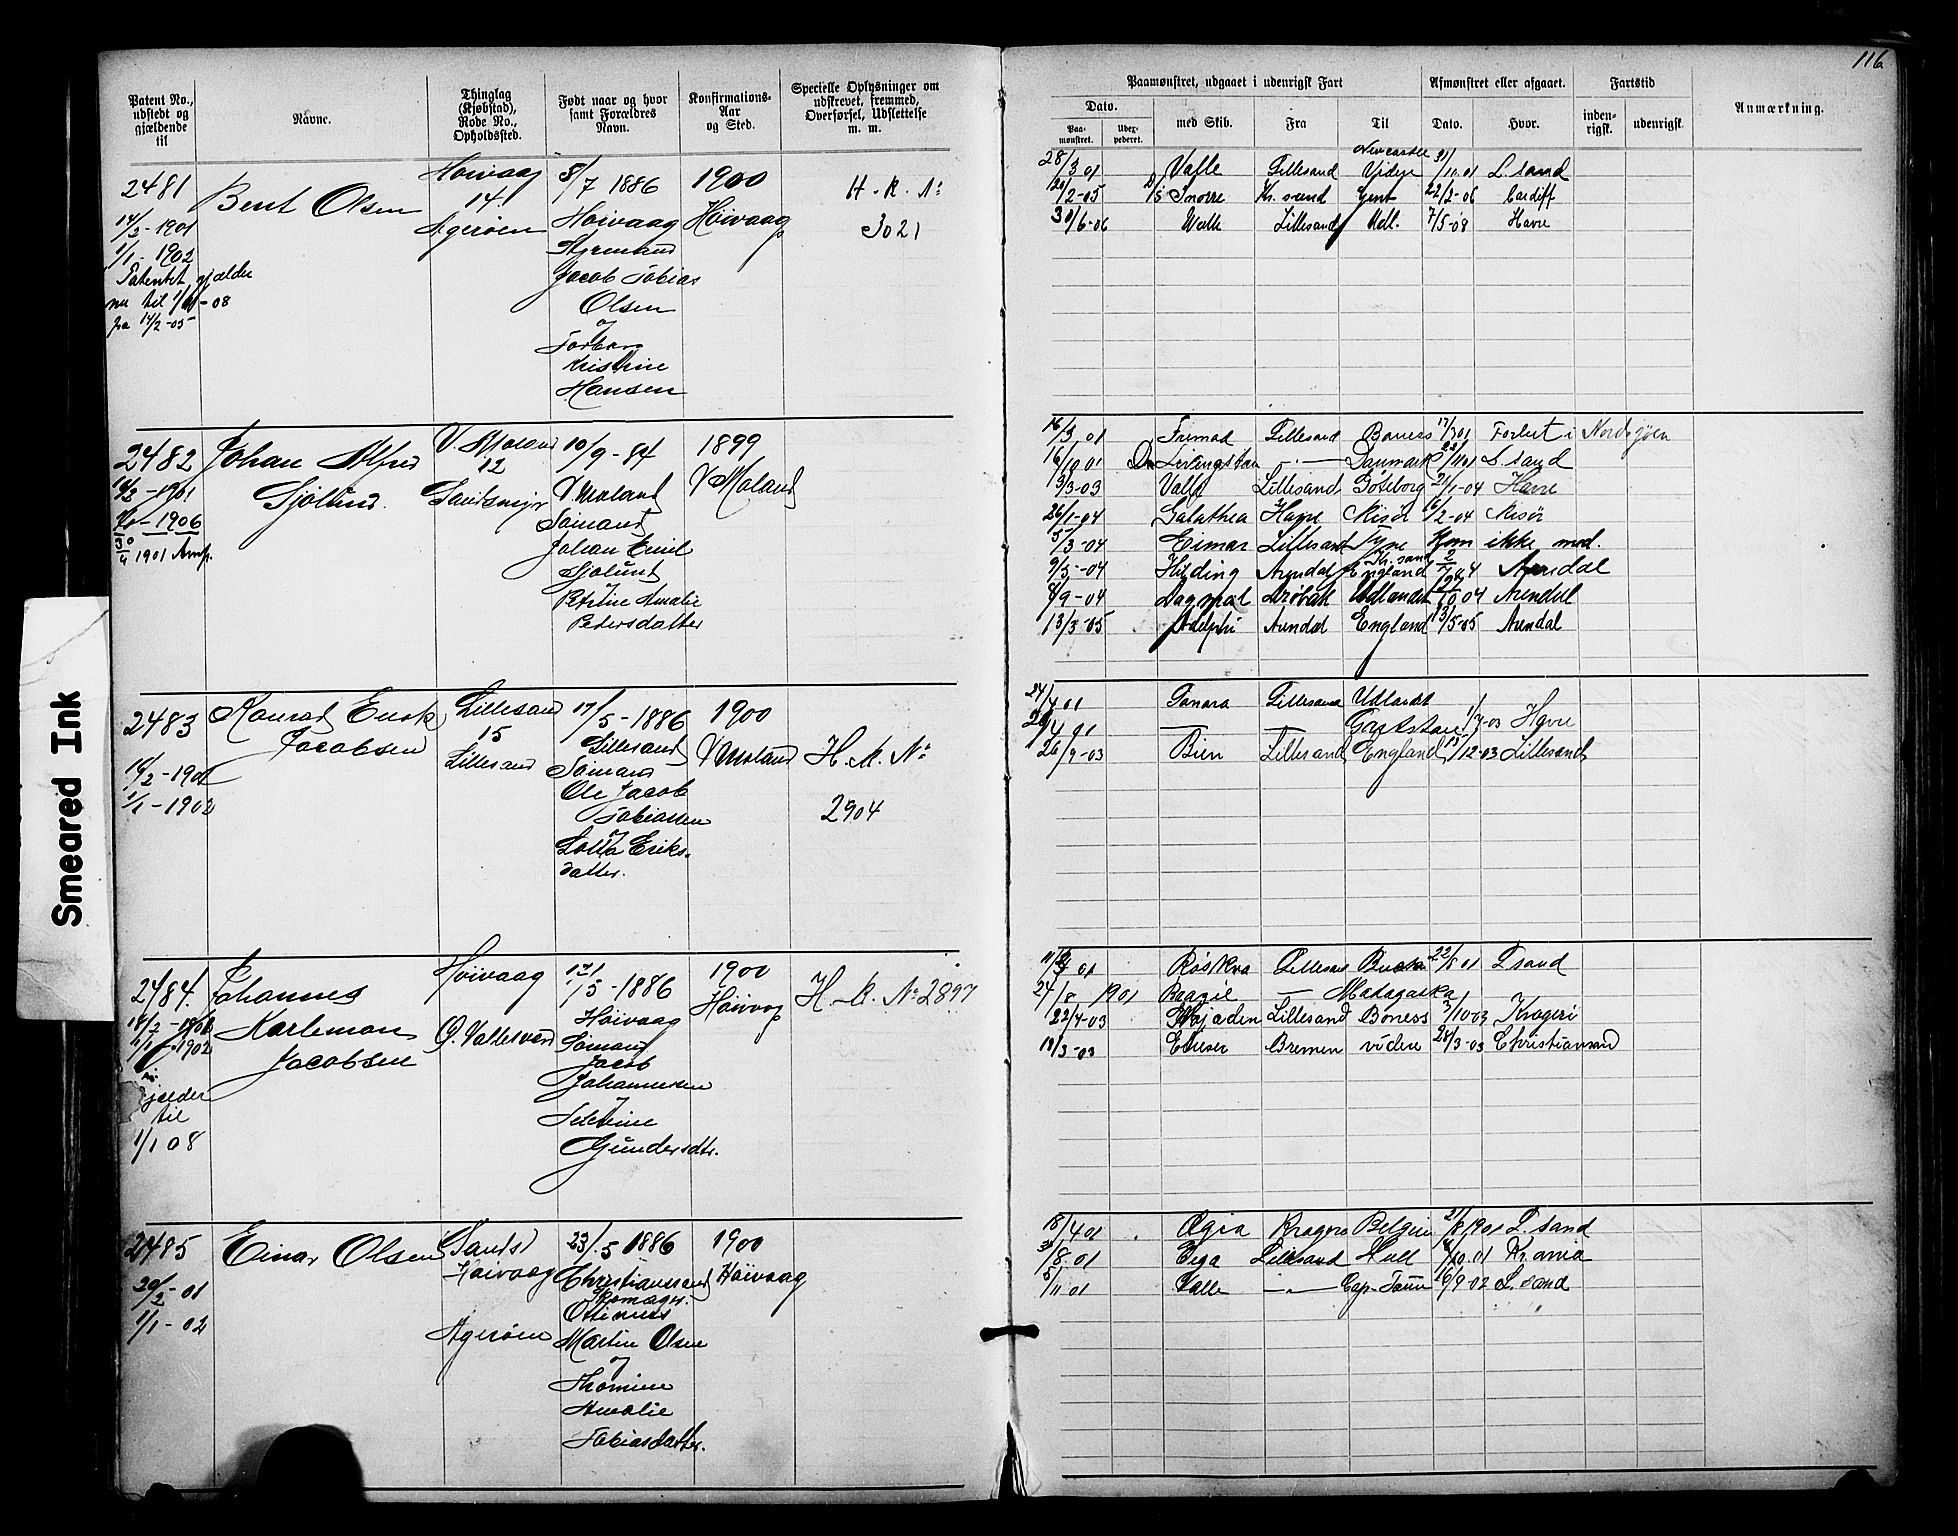 116
Patent No., udstedt og gjældende til
Navne.
Thinglag (Kjøbstad), Rode No., Opholdssted.
Født naar og hvor samt Forældres Navn.
Konfirmations-Aar og Sted.
Specielle Oplysninger om udskrevet, fremmed, Overførsel, Udslettelse m. m.
Paamønstret, udgaaet i udenrigsk Fart
Afmønstret eller afgaaet.
Fartstid
Anmærkning.
Dato.
Paa-mønstret.
Udex-pederet.
med Skib.
Fra
Til
Dato.
Hvor.
inden-rigsk.
udenrigsk.
2481
14/2-1901
1/1-1902
Patentet gjælder
nu til 1/1-08
fra 14/2-05
Bent Olsen
Høivaag
14
Agerøen
8/7 1886
Høivaag
Styrmand
Jacob Tobias
Olsen
og
Torbor
Kristine
Hansen
1900
Høivaag
H. R. No
3021
28/3 01 Valle Lillesand Newcastle Videre 31/10.01 L. sand
20/2-05 D/S Snorre Kr. sand Gent 22/2-06 Cardiff
30/6-06 Valle Lillesand Udl. 7/5-08 Havre
2482
14/2-1901
1/1-1906
1901
Johan Alfred
Sjølund.
V. Moland
12
10/9-84
V Moland
Sømand
Johan Emil
Sjølund
Petrine Amalie
Petersdatter
1899
V Moland
16/3 01 Fremad Lillesand 17/3 01 Forlist i Nordsjøen
16/10 01 Dr Livingstone -"- Danmark L. sand
3/3-03 Valle Lillesand Göteborg 21/1-04 Havre
26/1-04 Galathea Havre Risør 16/2-04 Risør
5/3-04 Einar Lillesand Tyne Kom ikke med.
9/5-04 Hilding Arendal Kr. sand England 04 Arendal
8/9-04 Dagmar Drøbak Udlandet 10 04 Arendal
13/3-05 Adelphi Arendal England 13/5-05 Arendal
2483
14/2-1901
1/1-1902
Konrad Enok
Jacobsen
Lillesand
15
Lillesand
17/5-1886
Lillesand
Sømand
Ole Jacob
Tobiassen
og
Lotta Eriks-
datter.
1900
V Moland
H. R. No
2904
24/4 01 Lillesand Udlandet
1/7-03 Havre
26/9-03 Bien Lillesand England 15/12-03 Lillesand
2484.
18/2-1901
1/1-1902
gjælder
til
1/1 08
Johannes
Karleman
Jacobsen
Høivaag
Ø. Vallesværd
1886
Høivaag
Sømand
Jacob
Johannesen
og
Gundersdtr.
1900
Høivaag
H. R. No 2897
01 Røskva Lillesand 22/8 01 L sand
27/8 1901 — Madagaska
22/4-03 Lillesand Boness 3/10 03 Kragerø
13/3-03 Bremen videre 28/3-03 Christiansand
2485
20/2-01
1/1-02
Einar Olsen
Høivaag
Agerøen
23/5 1886
Christianssand
Skomager
Martin Olsen
og
Thomine
Amalie
Tobiasdatter.
1900
Høivaag
18/4 01 Ægia Kragerø Belgien 1901 L. sand
8.01 Lillesand Hull 10.01 Kr.ania
5/11 01 Valle -"- 16/9-02 L. sand
Smeared Ink